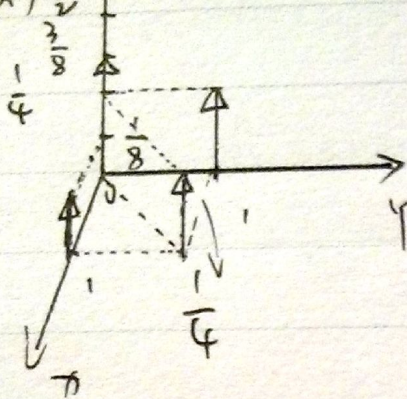 3/8
1/4
1/8
0
1
1
1/4
x